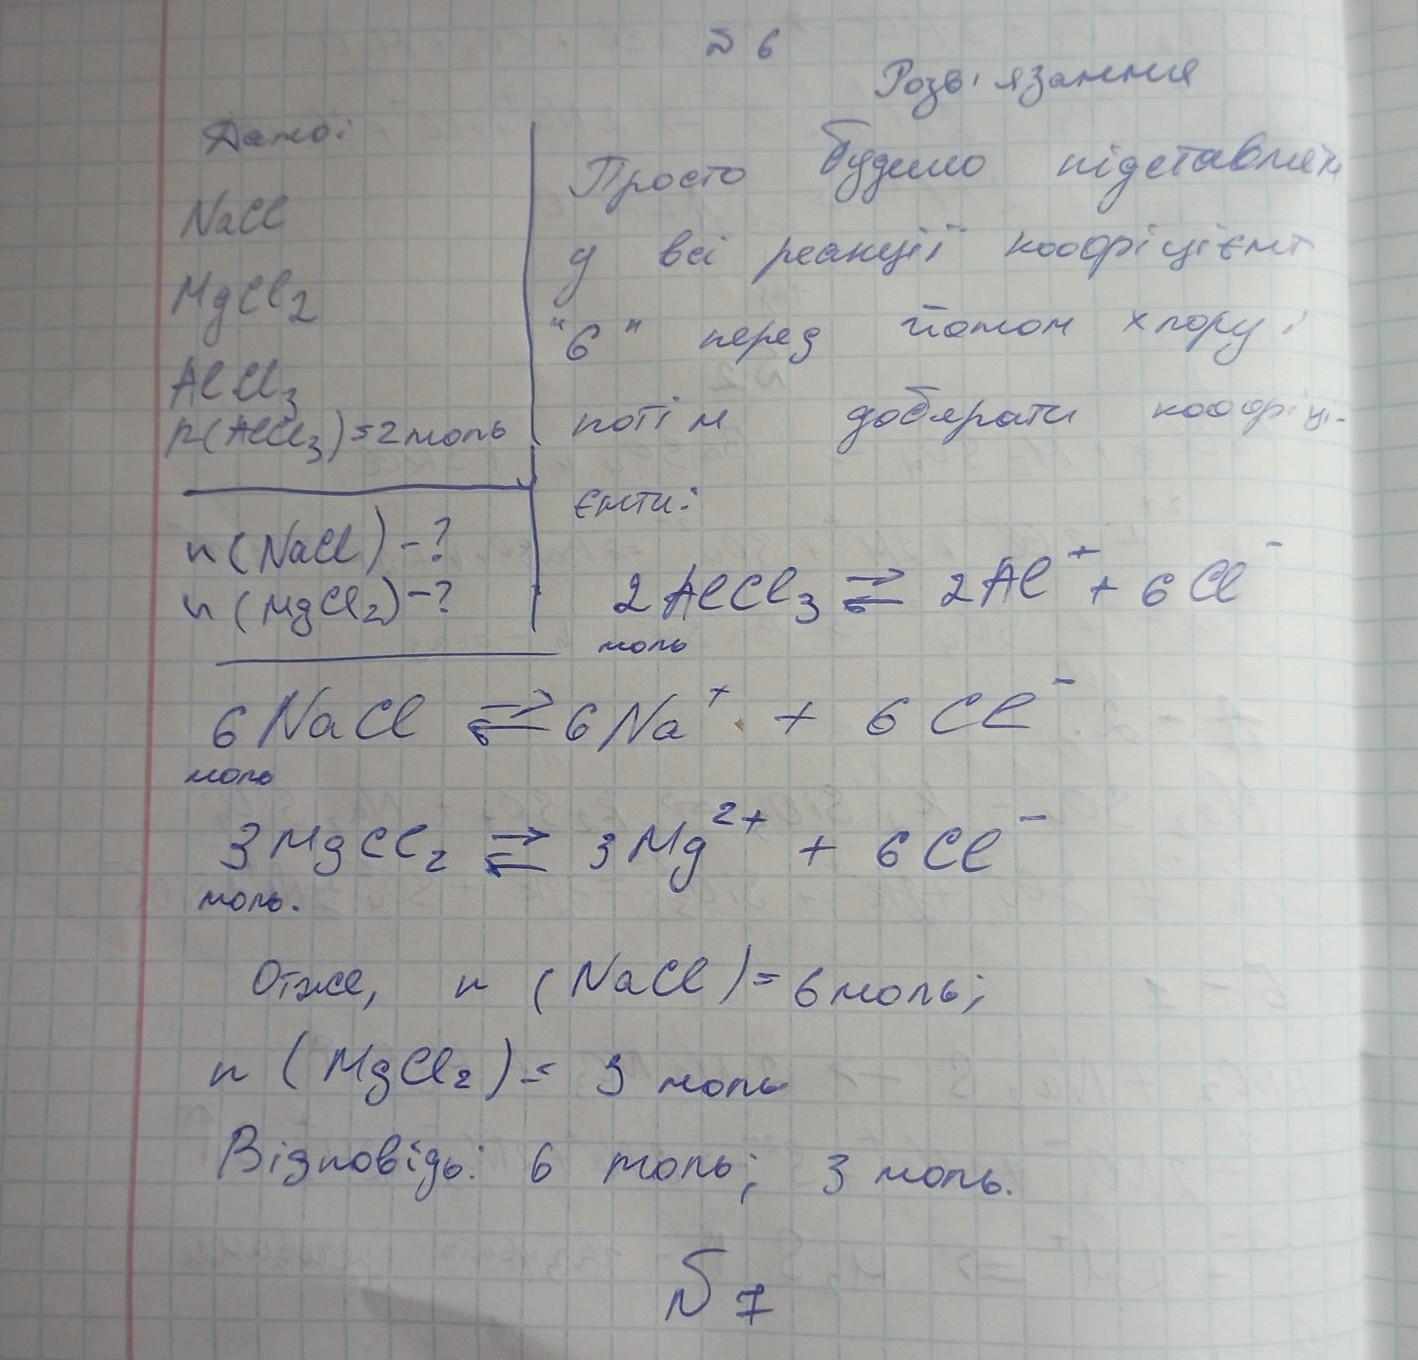 № 6
Розв'язання
Дано:
NaCl
MgCl2
AlCl3
n(AlCl3)=2моль
n(NaCl)-?
n(MgCl2)-?
Просто будемо підставляти
у всі реакції коофіцієнт
"6" перед йоном хлору і
потім добирати коофіці-
єнти:
2AlCl3 ⇄ 2Al⁺ + 6Cl⁻
моль
6NaCl ⇄ 6Na⁺ + 6Cl⁻
моль
3MgCl2 ⇄ 3Mg²⁺ + 6Cl⁻
моль.
Отже, n (NaCl)=6моль;
n (MgCl2)= 3 моль
Відповідь: 6 моль; 3 моль.
№ 7